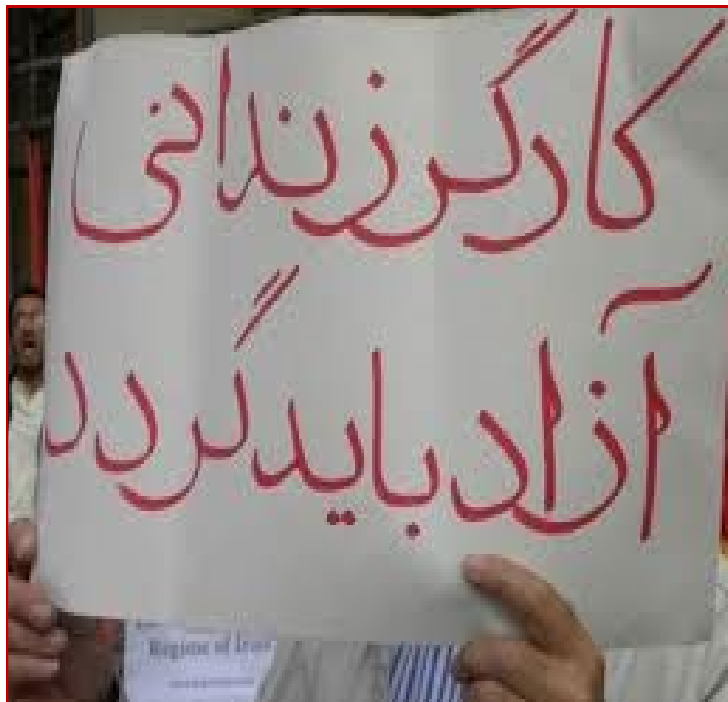 کارگر زندانی
آزاد باید گردد
Regime of Iran